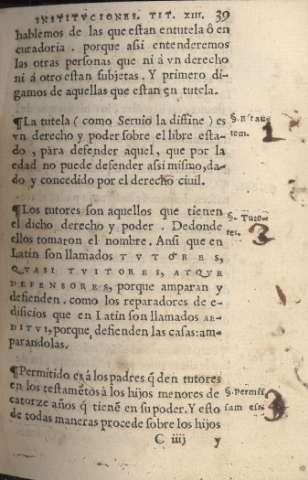 INSTITVCIONES. TIT. XIII. 39
hablemos de las que estan entutela ô en
curadoria. porque assi entenderemos
las otras personas que ni á vn derecho
ni á otro estan subjetas. Y primero di-
gamos de aquellas que estan en tutela.
¶La tutela (como Seruio la diffine) es
vn derecho y poder sobre el libre esta-
do, para defender aquel, que por la
edad no puede defender assi mismo, da-
do y concedido por el derecho ciuil.
§. Est autē
tem.
1
¶Los tutores son aquellos que tienen
el dicho derecho y poder. Dedonde
ellos tomaron el nombre. Ansi que en
Latin son llamados TVTORES,
QVASI TVITORES, ATQVE
DEFENSORES, porque amparan y
defienden. como los reparadores de e-
dificios que en Latin son llamados AE-
DITVI, porque defienden las casas: am-
parandolas.
§. Tuto-
res.
3
¶Permitido es á los padres q̃ den tutores
en los testamẽtos à los hijos menores de
catorze años q̃ tienẽ en su poder. Y esto
de todas maneras procede sobre los hijos
§. Permis
sum est.
3
C iiij y